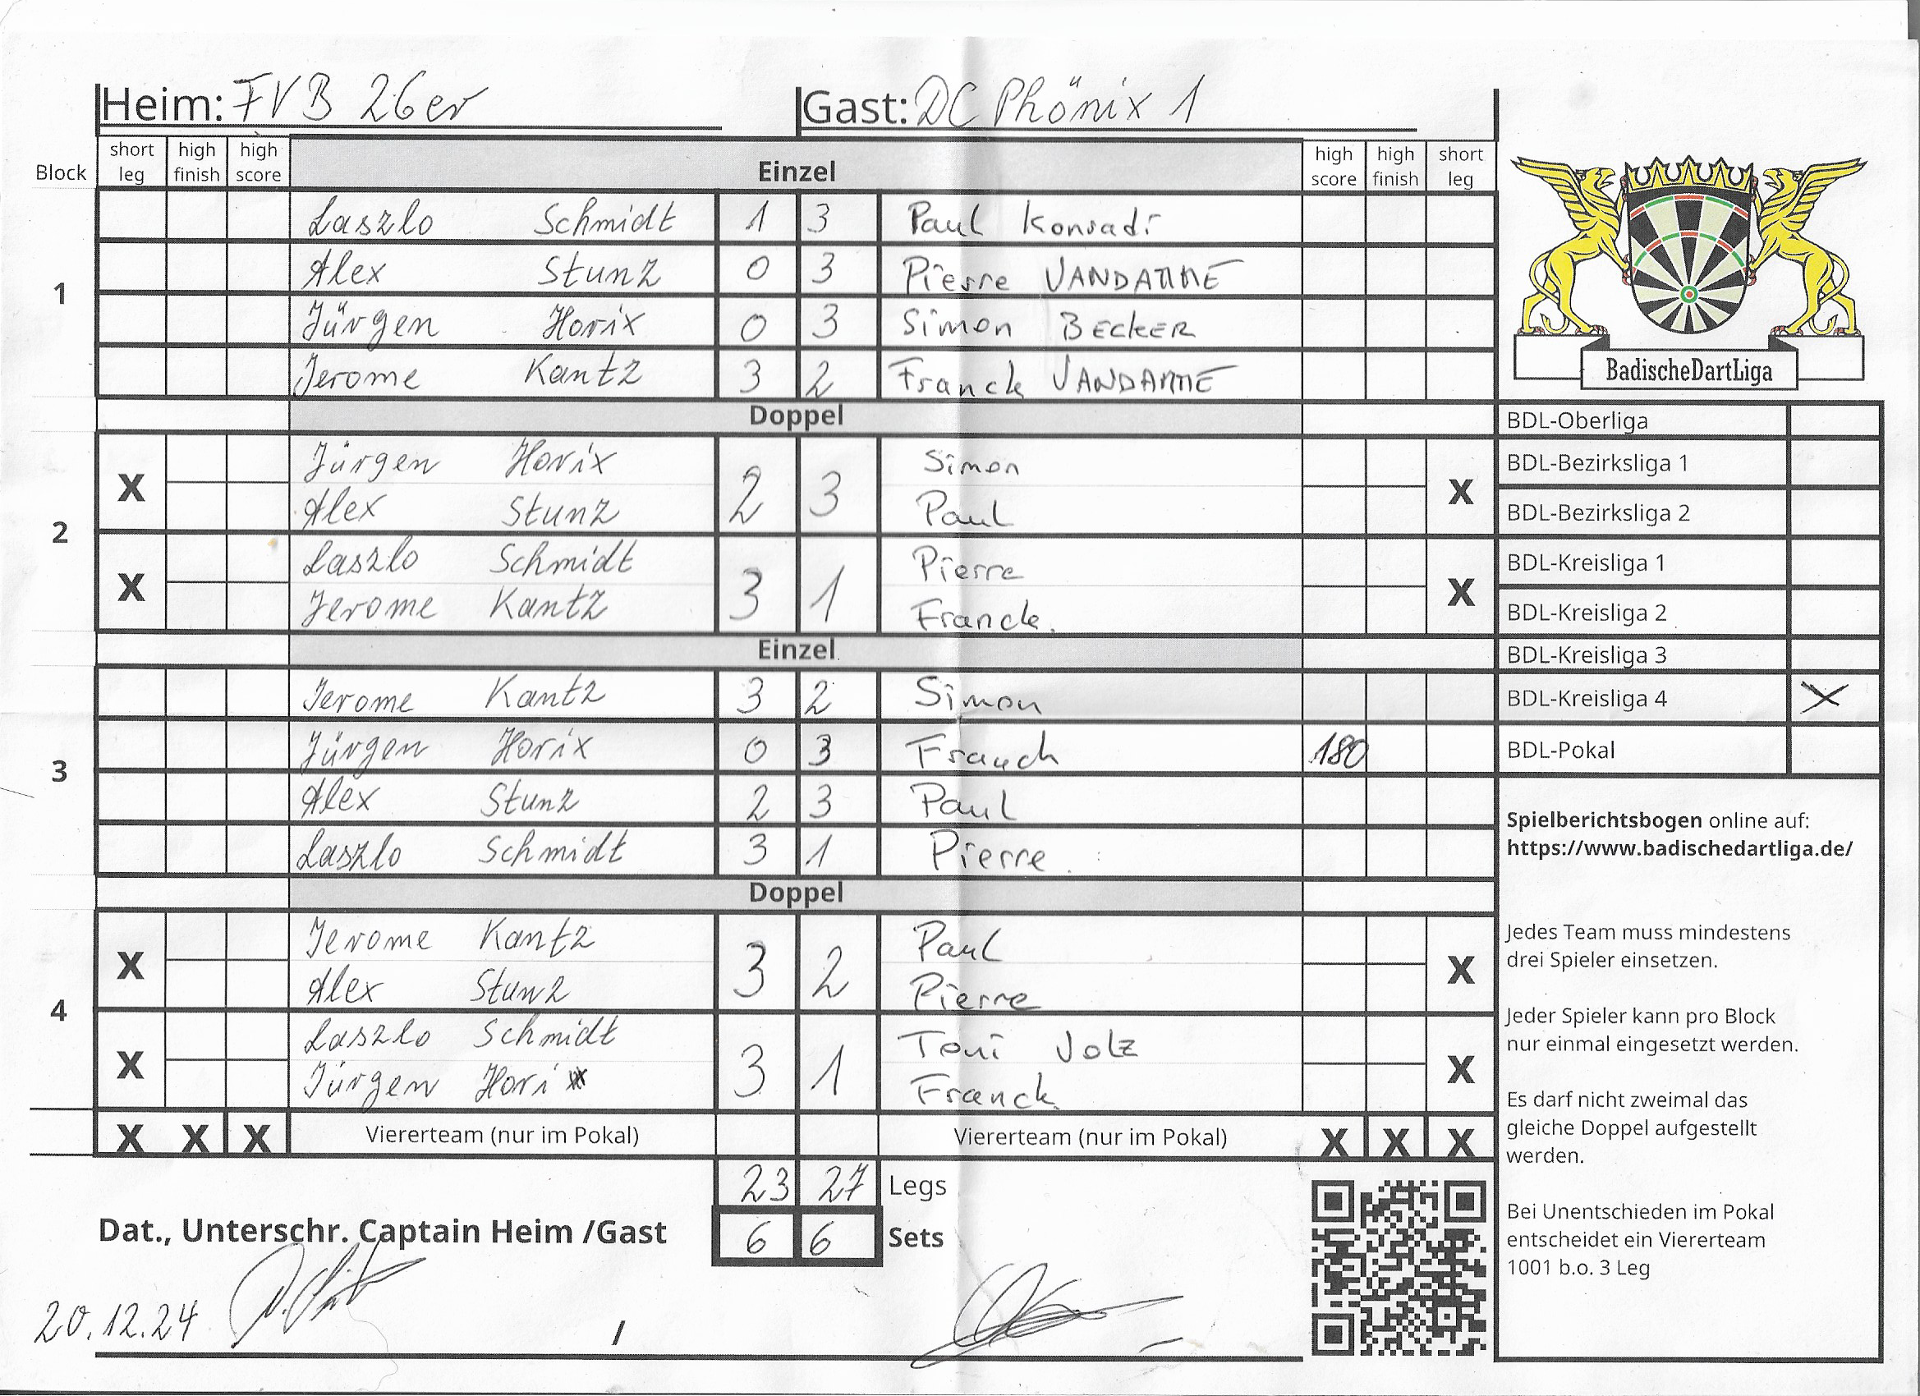 Heim: FVB 26er Gast: DC Phönix 1
Block short leg high finish high score Einzel high score high finish short leg
1
Laszlo Schmidt 1 3 Paul Konradi
Alex Stunz 0 3 Pierre VANDAMME
Jürgen Horix 0 3 Simon BECKER
Jerome Kantz 3 2 Franck VANDAMME
Doppel
2
X Jürgen Horix 2 3 Simon X
Alex Stunz Paul
X Laszlo Schmidt 3 1 Pierre X
Jerome Kantz Franck.
Einzel
3
Jerome Kantz 3 2 Simon
Jürgen Horix 0 3 Franck 180
Alex Stunz 2 3 Paul
Laszlo Schmidt 3 1 Pierre
Doppel
4
X Jerome Kantz 3 2 Paul X
Alex Stunz Pierre
X Laszlo Schmidt 3 1 Toni Volz X
Jürgen Horix Franck
X X X Viererteam (nur im Pokal) Viererteam (nur im Pokal) X X X
23 27 Legs
Dat., Unterschr. Captain Heim /Gast 6 6 Sets
20.12.24 /
BadischeDartLiga
BDL-Oberliga
BDL-Bezirksliga 1
BDL-Bezirksliga 2
BDL-Kreisliga 1
BDL-Kreisliga 2
BDL-Kreisliga 3
BDL-Kreisliga 4 X
BDL-Pokal
Spielberichtsbogen online auf:
https://www.badischedartliga.de/
Jedes Team muss mindestens
drei Spieler einsetzen.
Jeder Spieler kann pro Block
nur einmal eingesetzt werden.
Es darf nicht zweimal das
gleiche Doppel aufgestellt
werden.
Bei Unentschieden im Pokal
entscheidet ein Viererteam
1001 b.o. 3 Leg